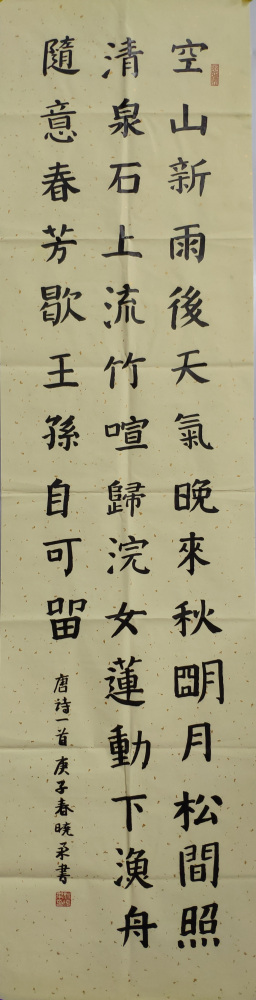 空山新雨後天氣晚來秋明月松間照
清泉石上流竹喧歸浣女蓮動下漁舟
隨意春芳歇王孫自可留
唐詩一首庚子春曉柔書